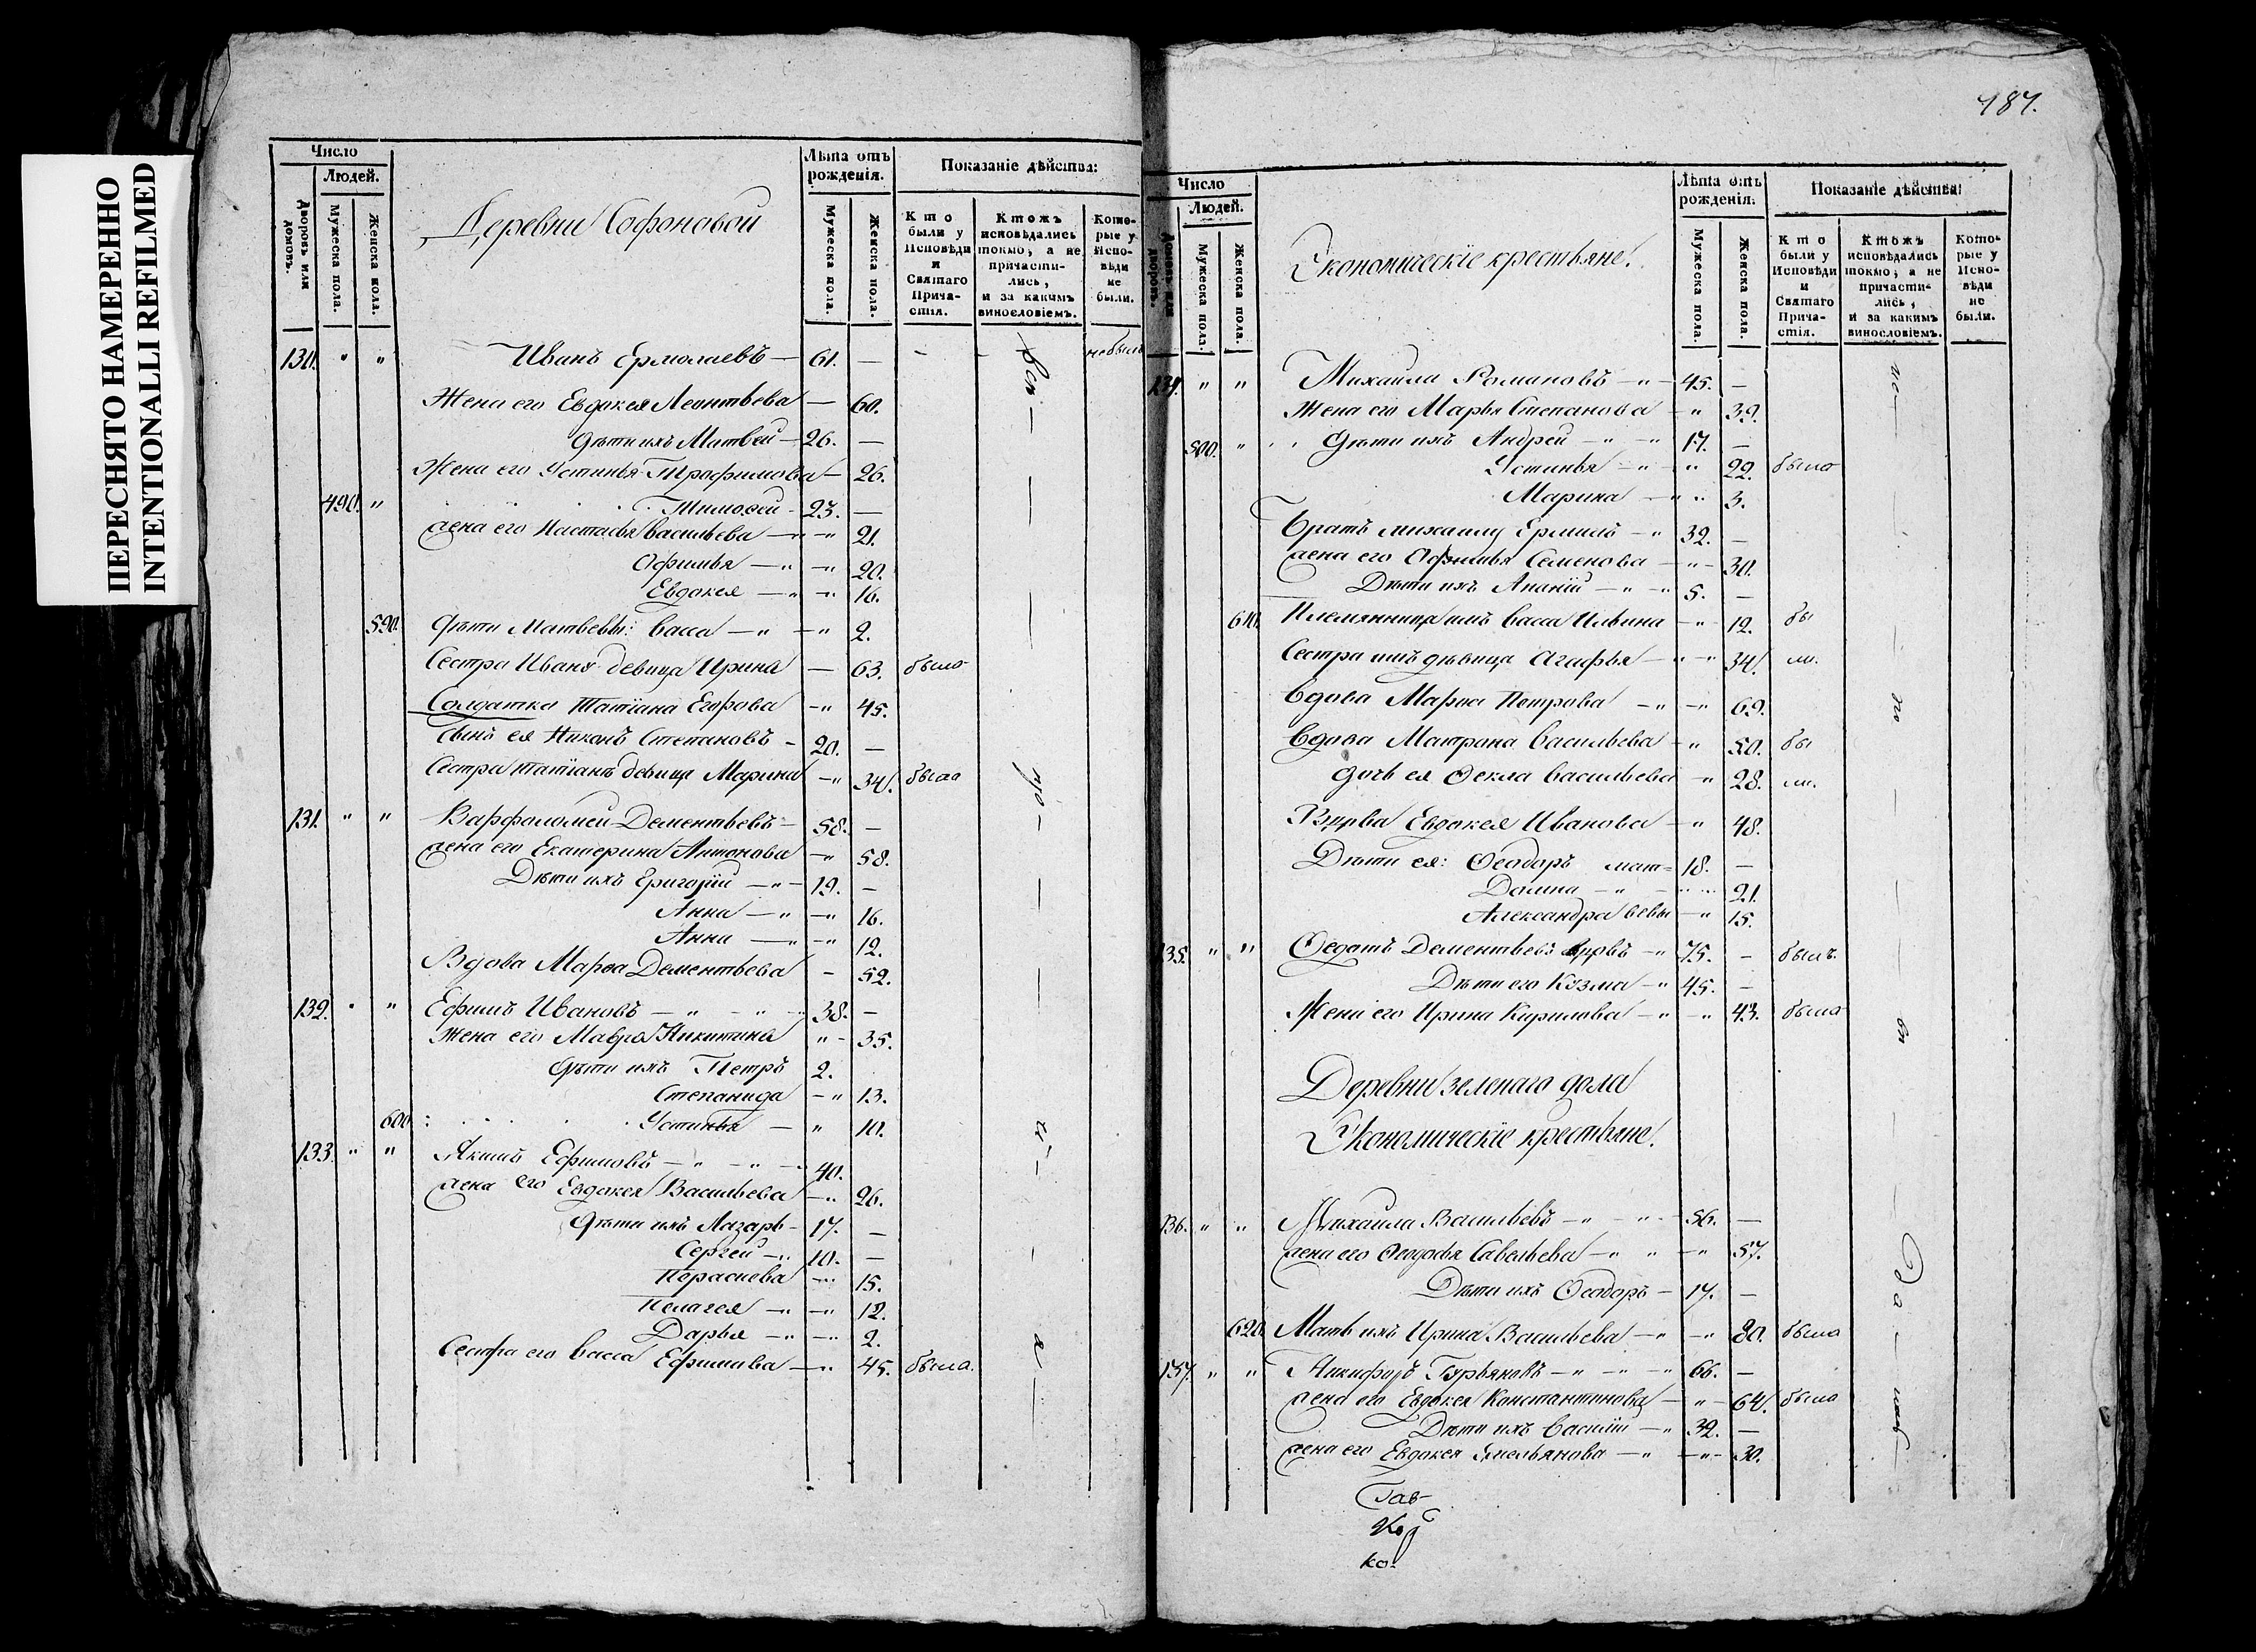 ПЕРЕСНЯТО НАМЕРЕННО
INTENTIONALLI REFILMED
Число
Людей.
Дворовъ или домовъ.
Мужеска пола.
Женска пола.
Деревни Софоновой
Лѣта отъ рожденія.
Мужеска пола.
Женска пола.
Показаніе дѣйства:
Кто были у Исповѣди и Святаго Прича- стія.
Ктожъ исповѣдались токмо, а не причасти- лись, и за какимъ винословіемъ.
Кото- рые у Испо- вѣди не были.
130. " " Иванъ Ермолаевъ — 61. — небылъ
Жена его Евдокея Леонтьева — 60.
Дѣти ихъ Матвей — 26. —
Жена его Устинья Трофимова — 26.
490. " Тимоѳей - 23. —
Жена его Настасья Васильева — " 21.
Офимья — " — " 20.
Евдокея — " — " 16.
590. Дѣти Матвевы: Васса — " — " 2.
Сестра Ивана девица Ирина — 63. была
Солдатка Татіана Егорова — " 45.
Сынъ ея Никонъ Степановъ - 20. —
Сестра Татіанѣ девица Марина — " 34. была
131. " " Варфоломей Дементьевъ — 58. —
Жена его Екатерина Антонова — " 58.
Дѣти ихъ Григорій — " — 19. —
Анна — " — " 16.
Анна — " — " 12.
Вдова Марѳа Дементьева - 52.
132. " " Ефимъ Ивановъ — " — " — " 38. —
Жена его Мавра Никитина " - 35.
Дѣти ихъ Петръ 2.
Степанида — " 13.
600 Устинья — " 10.
133. " " Якимъ Ефимовъ — " — " — 40.
Жена его Евдокея Васильева — " 26.
Дѣти ихъ Лазарь - 17. —
Сергей — " 10. —
Пораскева — " 15.
Пелагея — " — " 12.
Дарья — " — " 2.
Сестра его Васса Ефимова — " 45. была.
187.
Число
Людей.
Домовъ или дворовъ.
Мужеска пола.
Женска пола.
Экономическіе крестьяне.
Лѣта отъ рожденія.
Мужеска пола.
Женска пола.
Показаніе дѣйства:
Кто были у Исповѣди и Святаго Прича- стія.
Ктожъ исповѣдались токмо, а не причасти- лись, и за какимъ винословіемъ.
Кото- рые у Испо- вѣди не были.
134. " " Михаила Романовъ — " — 45. —
Жена его Марья Степанова — " 39.
500. " Дѣти ихъ Андрей — " — " 17. —
Устинья — " — " 22. была
Марина — " " 3.
Братъ михаилу Ермилъ — " 32. —
Жена его Офимья Семенова — " — 30.
Дѣти ихъ Ананій — " — " 5. —
610. Племянница имъ Васса Ильина — " 12. бы
Сестра имъ дѣвица Агафья — " — " 34. ли.
Вдова Марѳа Петрова — " — " 69.
Вдова Матрона Васильева — " 50. бы
Дочь ея Ѳекла Васильева — " 28. ли.
Вдова Евдокея Иванова — " 48.
Дѣти ея: Ѳеодоръ мат= 18. —
Домна — " — " 21.
Александра вевы — " 15.
135. " " Ѳедотъ Дементьевъ вдовъ — " 75. - былъ.
Дѣти его Козма — " 45. —
Жена его Ирина Кирилова — " — " 43. была
Деревни зеленаго дола
Экономическіе крестьяне.
136. " " Михаила Васильевъ — " — " — 56. —
Жена его Ѳеодосья Савельева — " " — " 57.
Дѣти ихъ Ѳеодоръ — 17. —
620. Мать ихъ Ирина Васильева — " — " 80. была
137. " " Никифоръ Гурьяновъ — " — " — " 66. —
Жена его Евдокея Константинова — " — 64. была
Дѣти ихъ Василій — " 32. —
Жена его Евдокея Емельянова — " — " — 30.
Гав-
ко.